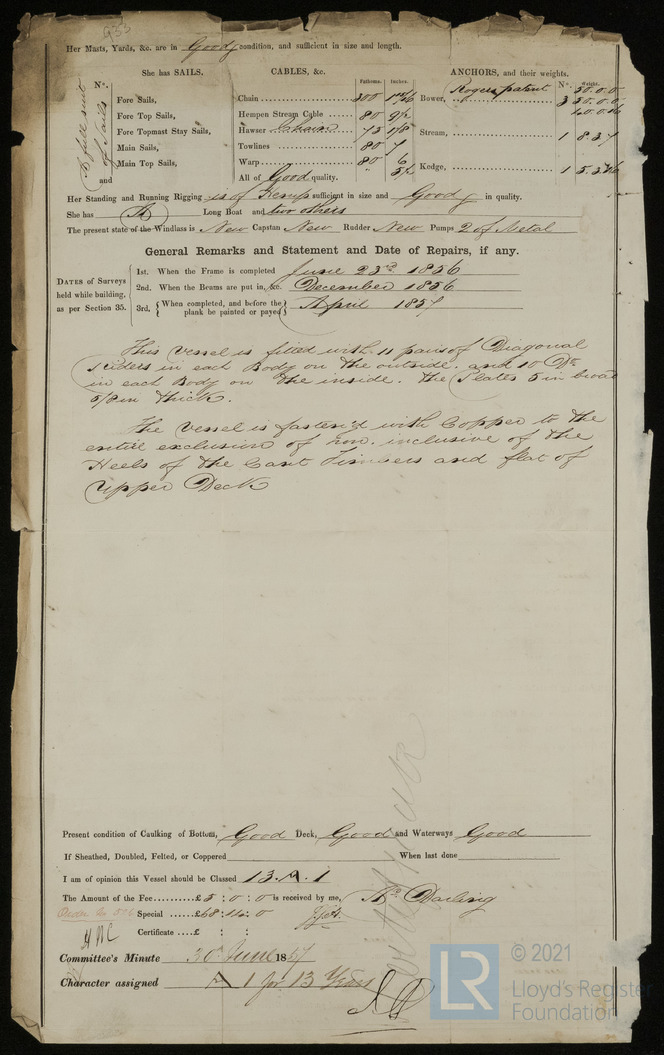 933
Her Masts, Yards, &c. are in Good condition, and sufficient in size and length.
She has SAILS.
CABLES, &c.
ANCHORS, and their weights.
N°.
Fathoms. Inches.
N°. Weight.
A full suit of Sails
Fore Sails,
Fore Top Sails,
Fore Topmast Stay Sails,
Main Sails,
Main Top Sails,
and
Chain 300
Hempen Stream Cable 80 9½
Hawser Chain 75 1⅛
Towlines 80 7
Warp 80 6
" 5½
All of Good quality.
Rogers patent
Bower, 3
Stream, 1 8.3.7
Kedge, 1
Her Standing and Running Rigging is of Hemp sufficient in size and Good in quality.
She has A Long Boat and two others
The present state of the Windlass is New Capstan New Rudder New Pumps 2 of Metal
General Remarks and Statement and Date of Repairs, if any.
DATES of Surveys held while building, as per Section 35.
1st. When the Frame is completed June 23rd 1856
2nd. When the Beams are put in, &c. December 1856
3rd, { When completed, and before the plank be painted or payed } April 1857
This Vessel is fitted with 11 pairs of Diagonal
Riders in each Body on the outside. and 10 Do
in each Body on the inside. the Plates 5 in broad
5/8 in thick.
The vessel is fastened with Copper to the
entire exclusion of Iron. inclusive of the
Heels of the Cant Timbers and flat of
Upper Deck
Present condition of Caulking of Bottom, Good Deck, Good and Waterways Good
If Sheathed, Doubled, Felted, or Coppered When last done
I am of opinion this Vessel should be Classed 13.A.1
The Amount of the Fee £5 : 0 : 0 is received by me, Darling
Special £68 : 14 : 0
Certificate £ : :
Committee's Minute 30th June 1857
Character assigned A 1 for 13 Years
LR
© 2021
Lloyd's Register
Foundation